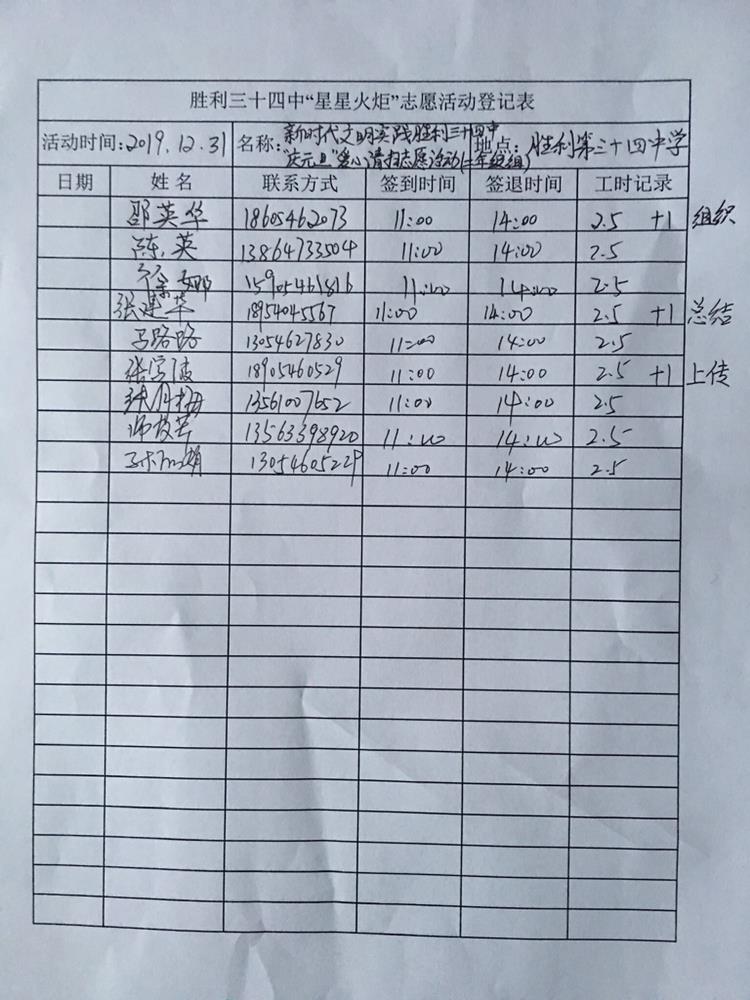 胜利三十四中“星星火炬”志愿活动登记表
活动时间:2019.12.31 名称: 新时代文明实践胜利三十四中 地点: 胜利第三十四中学
"庆元旦"爱心清扫志愿活动(二年级组)
日期 姓名 联系方式 签到时间 签退时间 工时记录
邵英华 18605462073 11:00 14:00 2.5 +1 组织
陈英 13864733504 11:00 14:00 2.5
徐娜 15905461816 11:00 14:00 2.5
张建华 18954045567 11:00 14:00 2.5 +1 总结
马路路 13054627830 11:00 14:00 2.5
张宝波 18905460529 11:00 14:00 2.5 +1 上传
13561007652 11:00 14:00 2.5
13563398920 11:00 14:00 2.5
13054605229 11:00 14:00 2.5